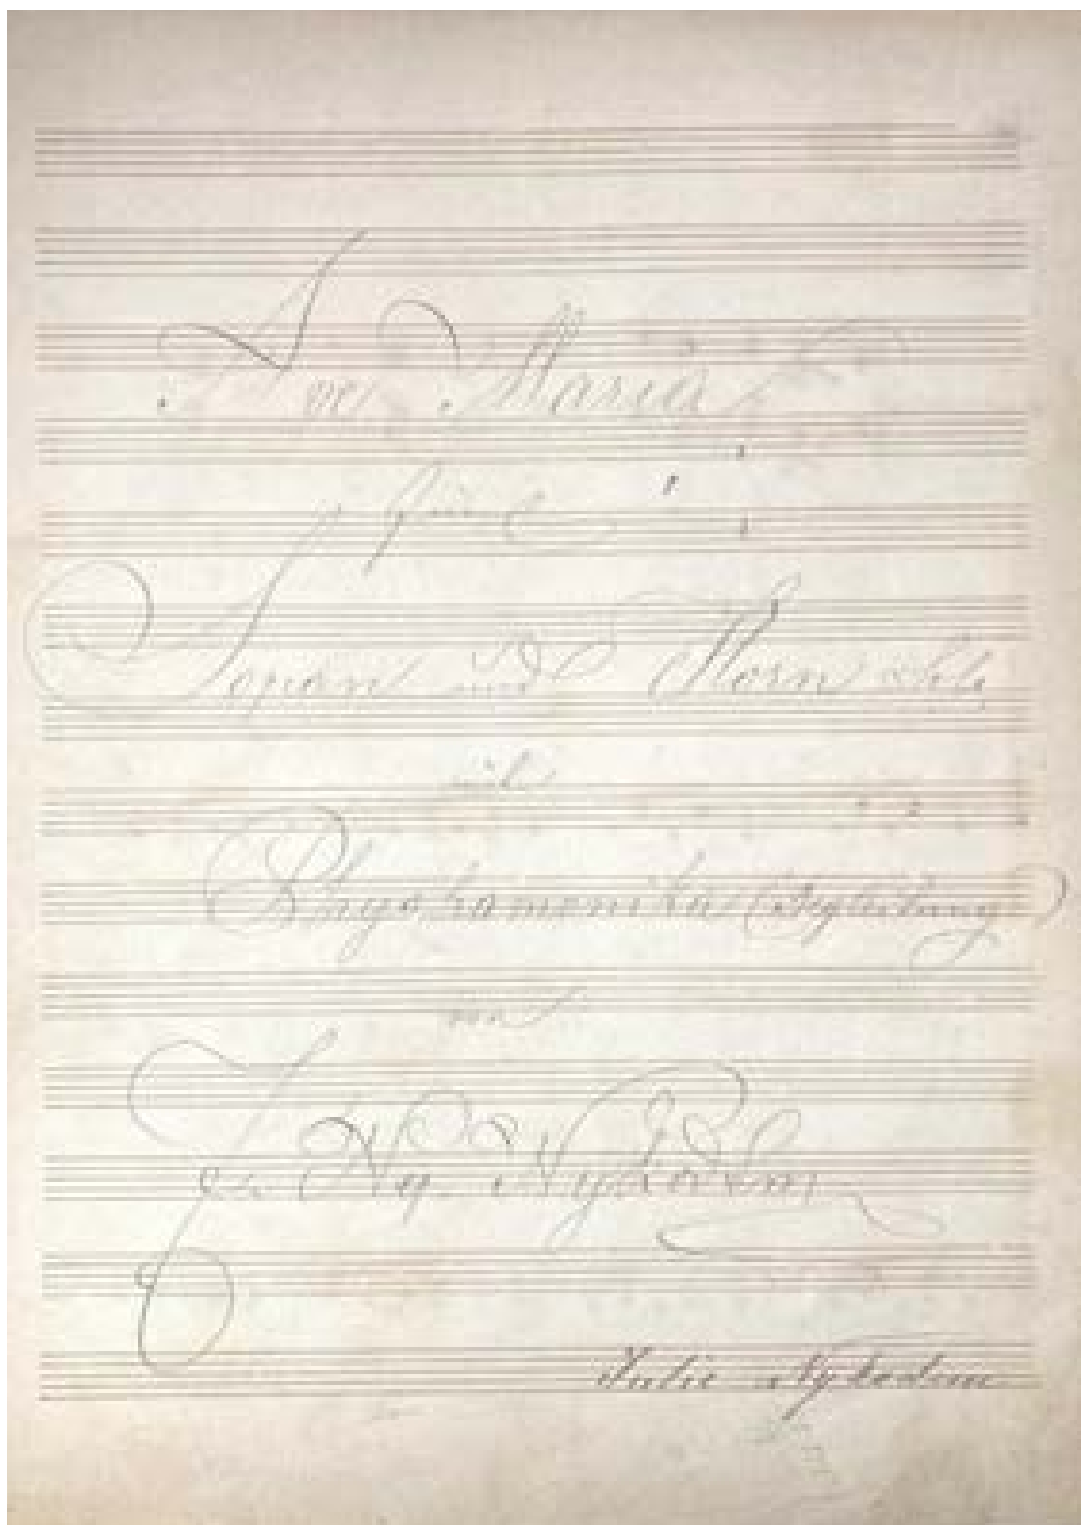 Ave Maria
für
Sopran und Horn Solo
mit
Physharmonika Begleitung
von
Nykodem
Julie Nykodem